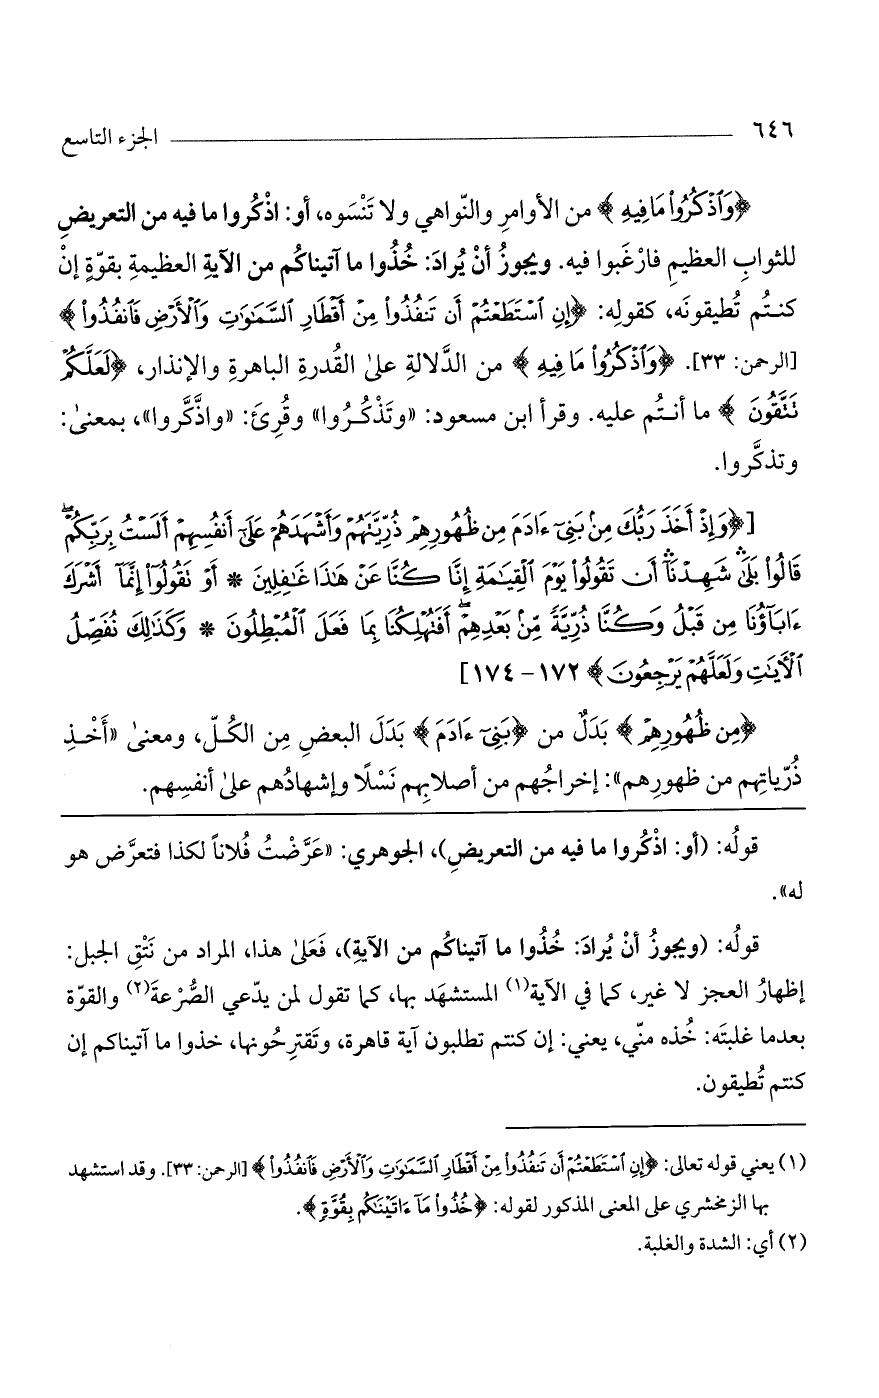 ٦٤٦ الجزء التاسع
﴿وَٱذْكُرُوا۟ مَا فِيهِ﴾ من الأوامرِ والنّواهي ولا تَنْسَوه، أو: اذْكُروا ما فيه من التعريضِ
للثوابِ العظيمِ فارْغَبوا فيه. ويجوزُ أنْ يُرادَ: خُذُوا ما آتيناكُم من الآيةِ العظيمةِ بقوّةٍ إنْ
كنتُم تُطيقونَه، كقولِه: ﴿إِنِ ٱسْتَطَعْتُمْ أَن تَنفُذُوا۟ مِنْ أَقْطَارِ ٱلسَّمَٰوَٰتِ وَٱلْأَرْضِ فَٱنفُذُوا۟﴾
[الرحمن: ٣٣]. ﴿وَٱذْكُرُوا۟ مَا فِيهِ﴾ من الدَّلالةِ علىٰ القُدرةِ الباهرةِ والإنذار، ﴿لَعَلَّكُمْ
تَتَّقُونَ﴾ ما أنتُم عليه. وقرأ ابن مسعود: «وتَذْكُروا» وقُرِئَ: «واذَّكَّروا»، بمعنىٰ:
وتذكَّروا.
[﴿وَإِذْ أَخَذَ رَبُّكَ مِنۢ بَنِىٓ ءَادَمَ مِن ظُهُورِهِمْ ذُرِّيَّتَهُمْ وَأَشْهَدَهُمْ عَلَىٰٓ أَنفُسِهِمْ أَلَسْتُ بِرَبِّكُمْ ۖ
قَالُوا۟ بَلَىٰ ۛ شَهِدْنَآ ۛ أَن تَقُولُوا۟ يَوْمَ ٱلْقِيَٰمَةِ إِنَّا كُنَّا عَنْ هَٰذَا غَٰفِلِينَ * أَوْ تَقُولُوٓا۟ إِنَّمَآ أَشْرَكَ
ءَابَآؤُنَا مِن قَبْلُ وَكُنَّا ذُرِّيَّةً مِّنۢ بَعْدِهِمْ ۖ أَفَتُهْلِكُنَا بِمَا فَعَلَ ٱلْمُبْطِلُونَ * وَكَذَٰلِكَ نُفَصِّلُ
ٱلْءَايَٰتِ وَلَعَلَّهُمْ يَرْجِعُونَ﴾ ١٧٢ - ١٧٤]
﴿مِن ظُهُورِهِمْ﴾ بَدَلٌ من ﴿بَنِىٓ ءَادَمَ﴾ بَدَلَ البعضِ مِن الكُلّ، ومعنىٰ «أَخْذِ
ذُرّياتِهم من ظهورِهم»: إخراجُهم من أصلابِهم نَسْلًا وإشهادُهم علىٰ أنفسِهم.
قولُه: (أو: اذْكُروا ما فيه من التعريضِ)، الجوهري: «عَرَّضْتُ فُلاناً لكذا فتعرَّض هو
له».
قولُه: (ويجوزُ أنْ يُرادَ: خُذُوا ما آتيناكُم من الآيةِ)، فَعَلىٰ هذا، المراد من نَتْقِ الجبل:
إظهارُ العجز لا غير، كما في الآية(١) المستشهَد بها، كما تقول لمن يدّعي الصُّرْعةَ(٢) والقوّة
بعدما غلبتَه: خُذه منّي، يعني: إن كنتم تطلبون آية قاهرة، وتَقترِحُونها، خذوا ما آتيناكم إن
كنتم تُطيقون.
(١) يعني قوله تعالى: ﴿إِنِ ٱسْتَطَعْتُمْ أَن تَنفُذُوا۟ مِنْ أَقْطَارِ ٱلسَّمَٰوَٰتِ وَٱلْأَرْضِ فَٱنفُذُوا۟﴾ [الرحمن: ٣٣]. وقد استشهد
بها الزمخشري على المعنى المذكور لقوله: ﴿خُذُوا۟ مَآ ءَاتَيْنَٰكُم بِقُوَّةٍ﴾.
(٢) أي: الشدة والغلبة.